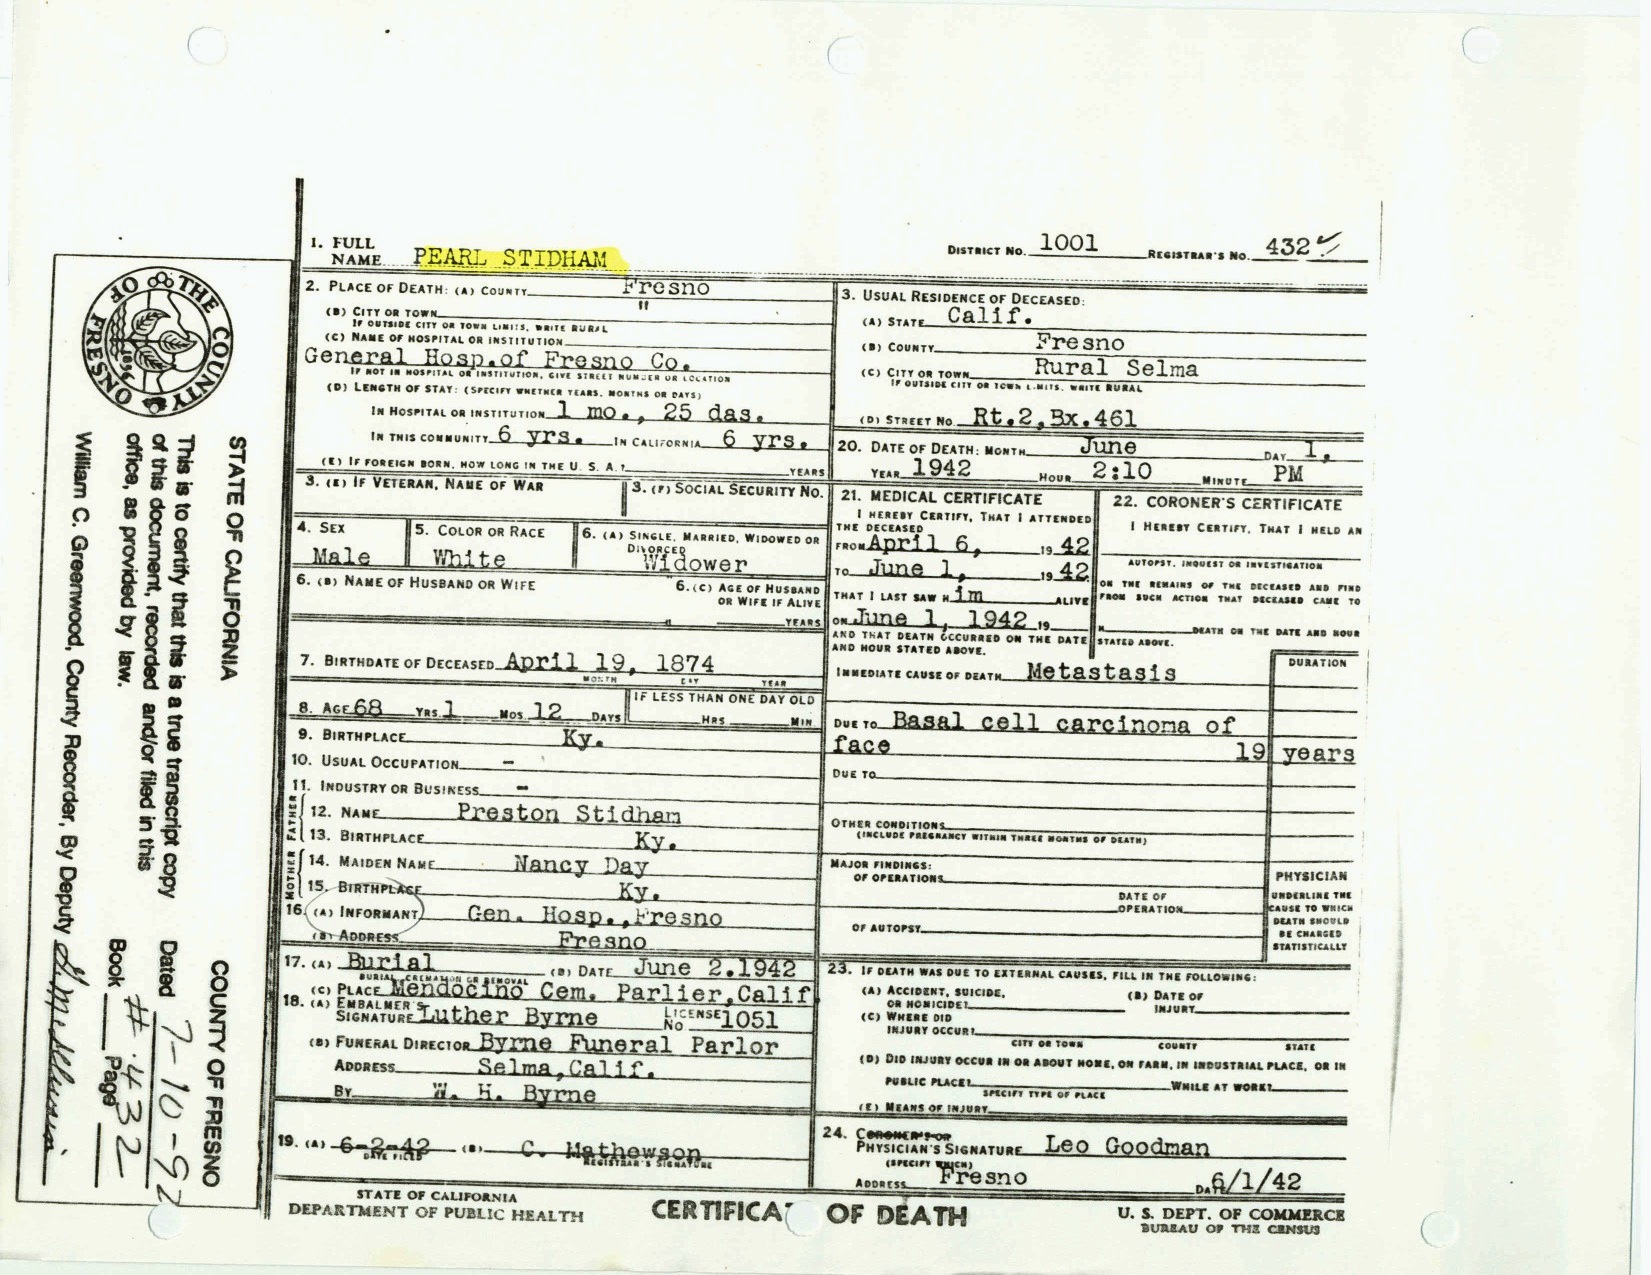 1. FULL NAME PEARL STIDHAM
DISTRICT NO. 1001 REGISTRAR'S NO. 432
2. PLACE OF DEATH: (A) COUNTY Fresno
(B) CITY OR TOWN "
IF OUTSIDE CITY OR TOWN LIMITS, WRITE RURAL
(C) NAME OF HOSPITAL OR INSTITUTION
General Hosp.of Fresno Co.
IF NOT IN HOSPITAL OR INSTITUTION, GIVE STREET NUMBER OR LOCATION
(D) LENGTH OF STAY: (SPECIFY WHETHER YEARS, MONTHS OR DAYS)
IN HOSPITAL OR INSTITUTION 1 mo., 25 das.
IN THIS COMMUNITY 6 yrs. IN CALIFORNIA 6 yrs.
(E) IF FOREIGN BORN, HOW LONG IN THE U. S. A.? YEARS
3. (E) IF VETERAN, NAME OF WAR
3. (F) SOCIAL SECURITY NO.
4. SEX
Male
5. COLOR OR RACE
White
6. (A) SINGLE, MARRIED, WIDOWED OR
DIVORCED
Widower
6. (B) NAME OF HUSBAND OR WIFE
6. (C) AGE OF HUSBAND
OR WIFE IF ALIVE
YEARS
7. BIRTHDATE OF DECEASED April 19, 1874
MONTH DAY YEAR
8. AGE 68 YRS 1 MOS 12 DAYS
IF LESS THAN ONE DAY OLD
HRS MIN
9. BIRTHPLACE Ky.
10. USUAL OCCUPATION -
11. INDUSTRY OR BUSINESS -
FATHER
12. NAME Preston Stidham
13. BIRTHPLACE Ky.
MOTHER
14. MAIDEN NAME Nancy Day
15. BIRTHPLACE Ky.
16. (A) INFORMANT Gen. Hosp.,Fresno
(B) ADDRESS Fresno
17. (A) Burial (B) DATE June 2.1942
BURIAL, CREMATION OR REMOVAL
(C) PLACE Mendocino Cem. Parlier,Calif
18. (A) EMBALMER'S
SIGNATURE Luther Byrne LICENSE NO 1051
(B) FUNERAL DIRECTOR Byrne Funeral Parlor
ADDRESS Selma,Calif.
BY W. H. Byrne
19. (A) 6-2-42 (B) C. Mathewson
DATE FILED REGISTRAR'S SIGNATURE
3. USUAL RESIDENCE OF DECEASED:
(A) STATE Calif.
(B) COUNTY Fresno
(C) CITY OR TOWN Rural Selma
IF OUTSIDE CITY OR TOWN LIMITS, WRITE RURAL
(D) STREET NO Rt.2,Bx.461
20. DATE OF DEATH: MONTH June DAY 1,
YEAR 1942 HOUR 2:10 MINUTE PM
21. MEDICAL CERTIFICATE
I HEREBY CERTIFY, THAT I ATTENDED
THE DECEASED
FROM April 6, 19 42
TO June 1, 19 42
THAT I LAST SAW H im ALIVE
ON June 1, 1942 19
AND THAT DEATH OCCURRED ON THE DATE
AND HOUR STATED ABOVE.
22. CORONER'S CERTIFICATE
I HEREBY CERTIFY, THAT I HELD AN
AUTOPSY, INQUEST OR INVESTIGATION
ON THE REMAINS OF THE DECEASED AND FIND
FROM SUCH ACTION THAT DECEASED CAME TO
H DEATH ON THE DATE AND HOUR
STATED ABOVE.
IMMEDIATE CAUSE OF DEATH Metastasis
DURATION
DUE TO Basal cell carcinoma of
face 19 years
DUE TO
OTHER CONDITIONS
(INCLUDE PREGNANCY WITHIN THREE MONTHS OF DEATH)
MAJOR FINDINGS:
OF OPERATIONS
DATE OF
OPERATION
OF AUTOPSY
PHYSICIAN
UNDERLINE THE
CAUSE TO WHICH
DEATH SHOULD
BE CHARGED
STATISTICALLY
23. IF DEATH WAS DUE TO EXTERNAL CAUSES, FILL IN THE FOLLOWING:
(A) ACCIDENT, SUICIDE,
OR HOMICIDE?
(B) DATE OF
INJURY
(C) WHERE DID
INJURY OCCUR?
CITY OR TOWN COUNTY STATE
(D) DID INJURY OCCUR IN OR ABOUT HOME, ON FARM, IN INDUSTRIAL PLACE, OR IN
PUBLIC PLACE? WHILE AT WORK?
SPECIFY TYPE OF PLACE
(E) MEANS OF INJURY
24. CORONER'S OR
PHYSICIAN'S SIGNATURE Leo Goodman
(SPECIFY WHICH)
ADDRESS Fresno DATE 6/1/42
STATE OF CALIFORNIA
DEPARTMENT OF PUBLIC HEALTH
CERTIFICA OF DEATH
U. S. DEPT. OF COMMERCE
BUREAU OF THE CENSUS
THE COUNTY OF FRESNO
1856
STATE OF CALIFORNIA COUNTY OF FRESNO
This is to certify that this is a true transcript copy Dated 7-10-92
of this document, recorded and/or filed in this # 432
office, as provided by law. Book Page
William C. Greenwood, County Recorder, By Deputy